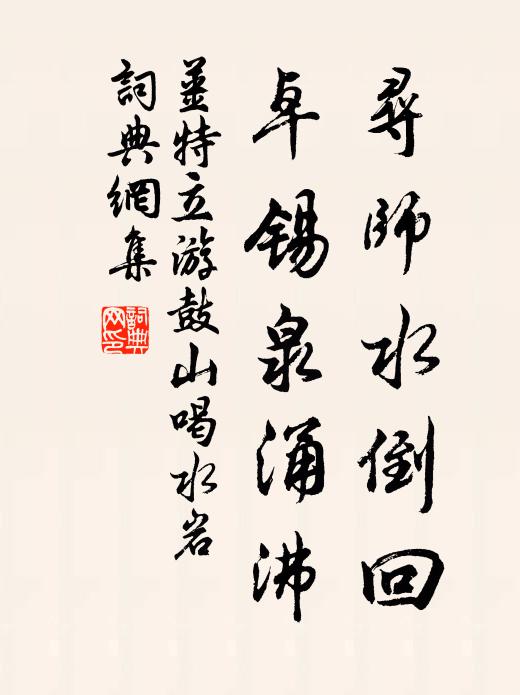 尋師水倒回
卓錫泉涌沸
姜特立游鼓山喝水岩
詞典網集
詞典网印